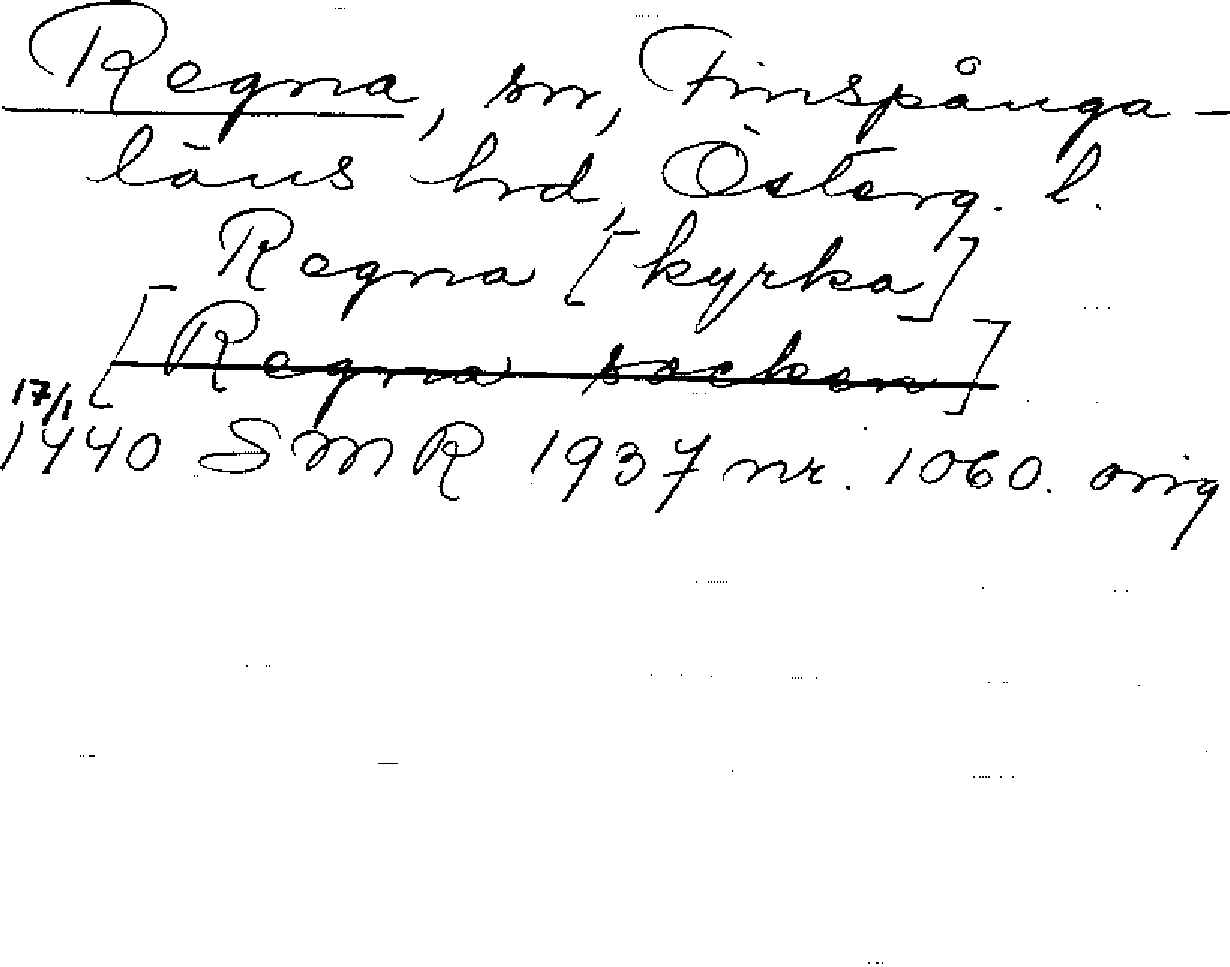 Regna, sn, Finspånga-
läns hrd, Österg. l.
Regna [kyrka]
[Regna socken]
17/1
1440 SMR 1937 nr. 1060. orig